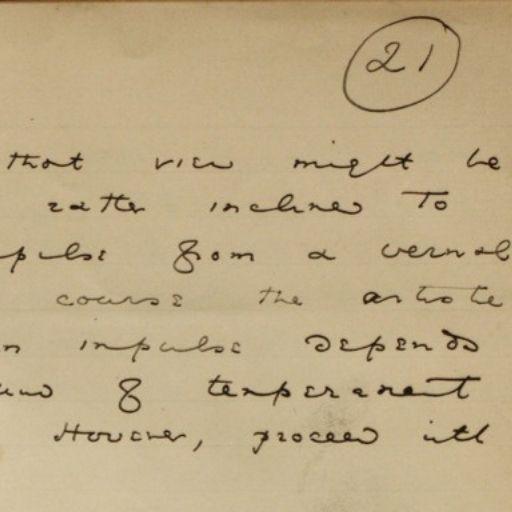 21
that view might be
rather inclined to
pulse from a vernal
course the artiste
impulse depends
of temperament
However, proceed with